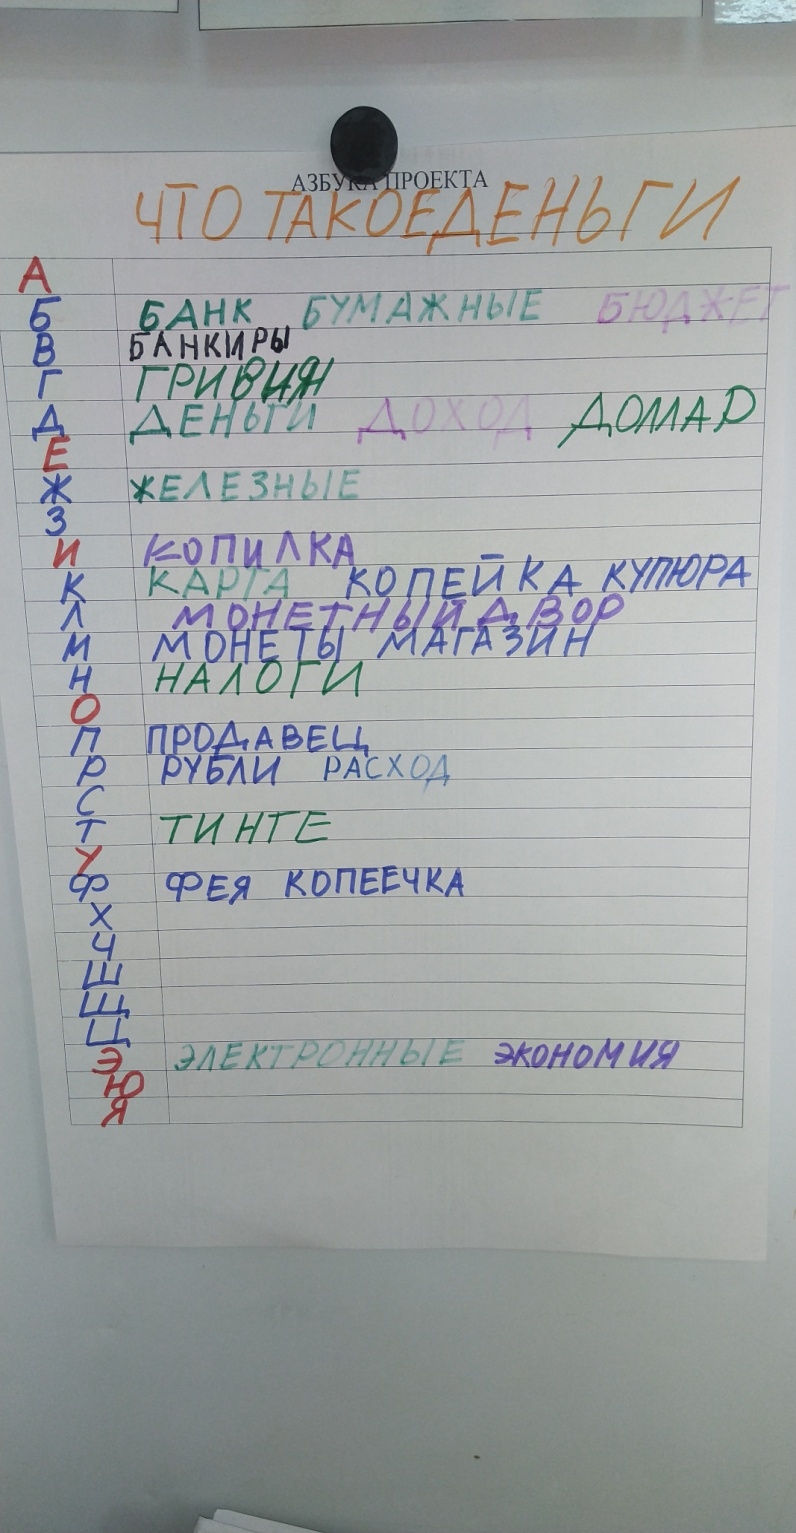 АЗБУКА ПРОЕКТА
ЧТО ТАКОЕ ДЕНЬГИ
А
Б БАНК БУМАЖНЫЕ БЮДЖЕТ
В БАНКИРЫ
Г ГРИВИЯ
Д ДЕНЬГИ ДОХОД ДОЛЛАР
Е
Ж ЖЕЛЕЗНЫЕ
З
И КОПИЛКА
К КАРТА КОПЕЙКА КУПЮРА
Л МОНЕТНЫЙ ДВОР
М МОНЕТЫ МАГАЗИН
Н НАЛОГИ
О
П ПРОДАВЕЦ
Р РУБЛИ РАСХОД
С
Т ТИНГЕ
У
Ф ФЕЯ КОПЕЕЧКА
Х
Ч
Ш
Щ
Ц
Э ЭЛЕКТРОННЫЕ ЭКОНОМИЯ
Ю
Я